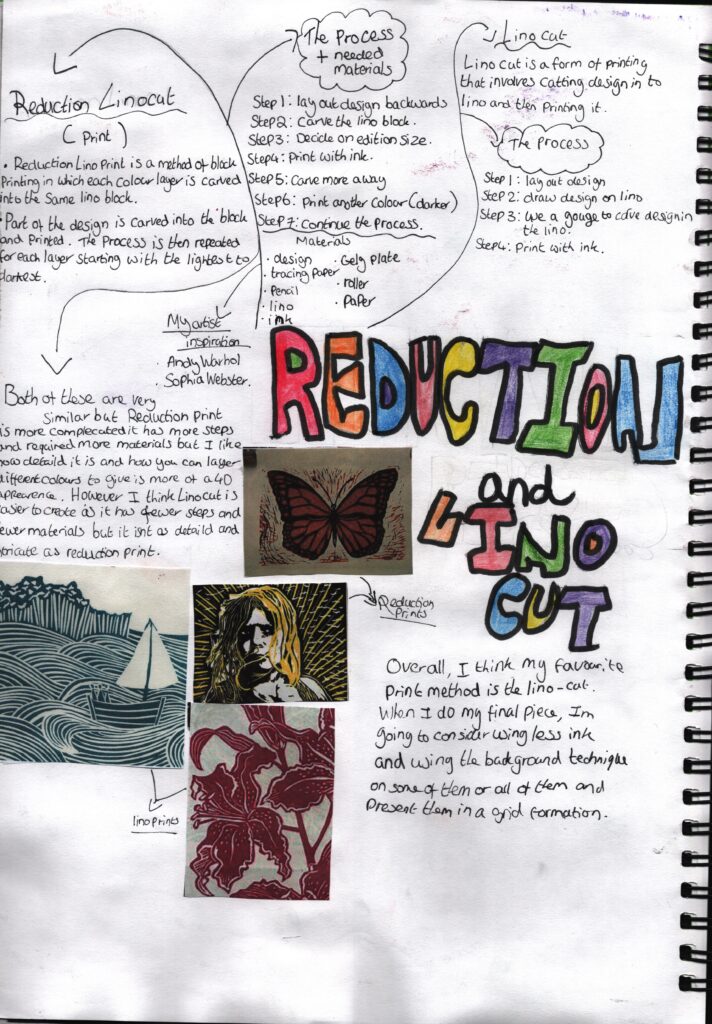 Reduction Linocut
(Print)
• Reduction Lino Print is a method of block
Printing in which each colour layer is carved
into the same lino block.
• Part of the design is carved into the block
and Printed. The Process is then repeated
for each layer starting with the lightest to
darkest.
The Process
+ needed
materials
Step 1: lay out design backwards
Step 2: Carve the lino block.
Step 3: Decide on edition size.
Step 4: Print with ink.
Step 5: Carve more away
Step 6: Print another colour (darker)
Step 7: Continue the Process.
Materials
• design
• tracing paper
• Pencil
• lino
• ink
• Gely plate
• roller
• Paper
Lino cut
Lino cut is a form of printing
that involves cutting design in to
lino and then Printing it.
The Process
Step 1: lay out design
Step 2: draw design on lino
Step 3: use a gouge to carve design in
the lino.
Step 4: Print with ink.
My artist
inspiration
Andy Warhol
Sophia Webster.
REDUCTION
and
LINO
CUT
Both of these are very
Similar but Reduction Print
is more complecated it has more steps
and required more materials but I like
how detaild it is and how you can layer
different colours to give is more of a 4D
apprerence. However I think Linocut is
easier to create as it has fewer steps and
fewer materials but it isnt as detaild and
intricate as reduction print.
Reduction
Prints
lino prints
Overall, I think my favourite
Print method is the lino-cut.
When I do my final piece, Im
going to consider using less ink
and using the background technique
on some of them or all of them and
Present them in a grid formation.